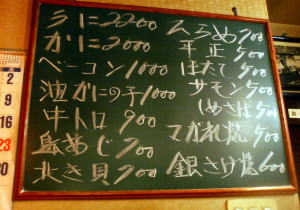 うに2200
かに2000
ベーコン1000
油がにの子1000
中トロ900
島あじ700
北き貝700
ひらめ700
平正500
ほたて500
サモン500
しめさば500
マガれ焼500
銀さけ焼600
2
9
16
23